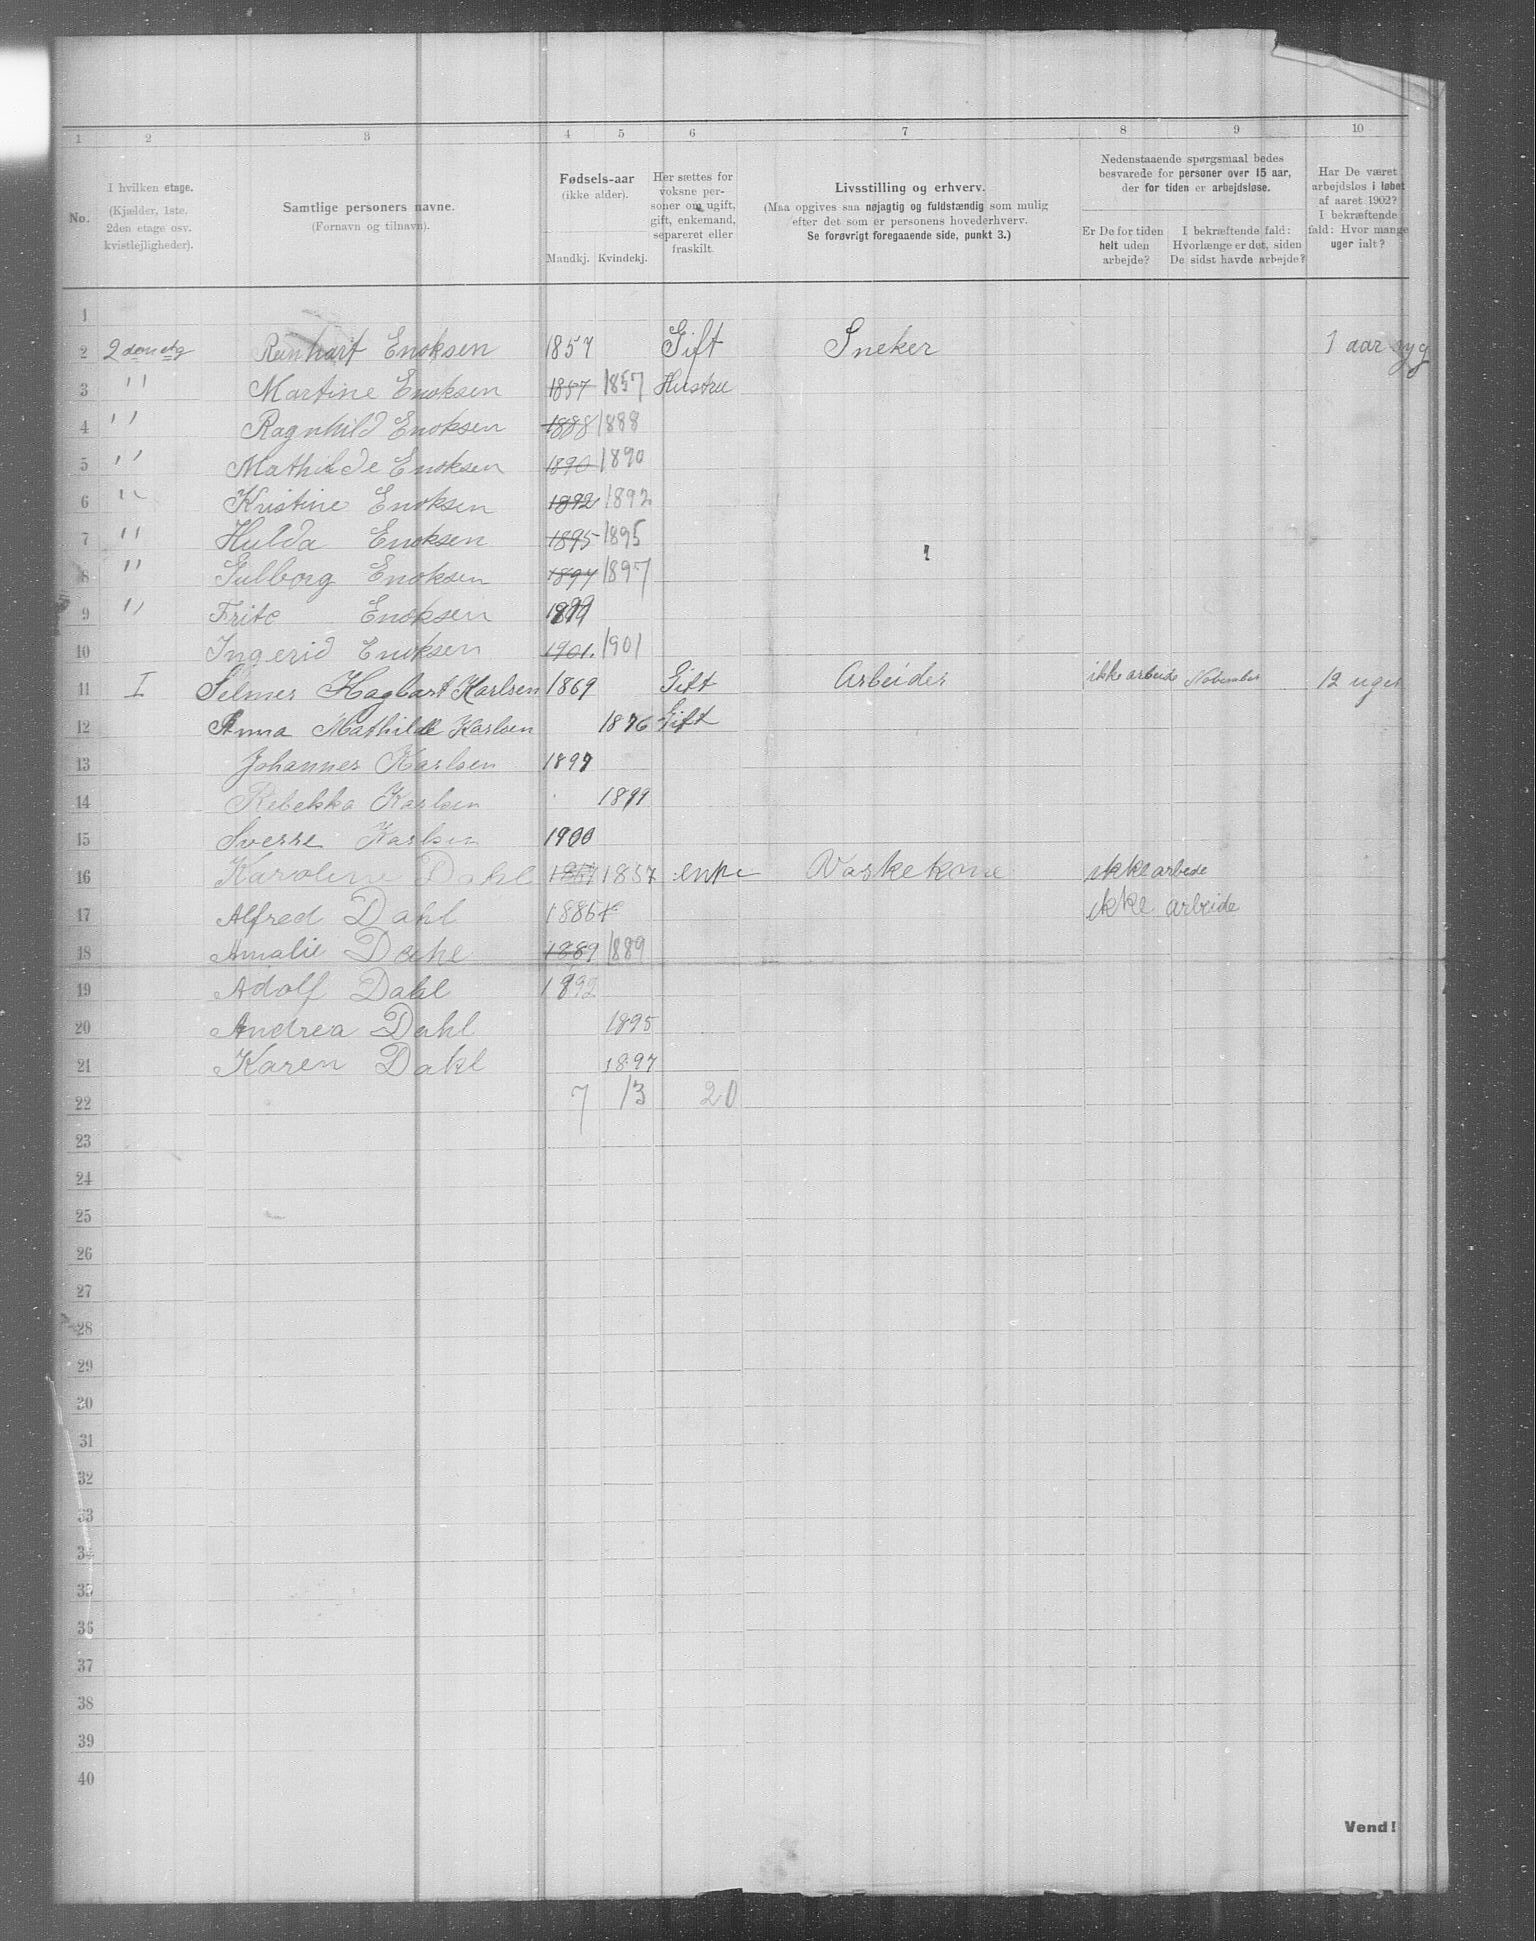 1 2 3 4 5 6 7 8 9 10
No.
I hvilken etage.
(Kjælder, 1ste.
2den etage osv.
kvistlejligheder).
Samtlige personers navne.
(Fornavn og tilnavn).
Fødsels-aar
(ikke alder).
Mandkj. Kvindekj.
Her sættes for
voksne per-
soner om ugift,
gift, enkemand,
separeret eller
fraskilt.
Livsstilling og erhverv.
(Maa opgives saa nøjagtig og fuldstændig som mulig
efter det som er personens hovederhverv.
Se forøvrigt foregaaende side, punkt 3.)
Nedenstaaende spørgsmaal bedes
besvarede for personer over 15 aar,
der for tiden er arbejdsløse.
Er De for tiden
helt uden
arbejde?
I bekræftende fald:
Hvorlænge er det, siden
De sidst havde arbejde?
Har De været
arbejdsløs i løbet
af aaret 1902?
I bekræftende
fald: Hvor mange
uger ialt?
1
2 2den etg Reinhart Enoksen 1857 Gift Sneker 1 aar syg
3 " Martine Enoksen 1857 1857 Hustru
4 " Ragnhild Enoksen 1888 1888
5 " Mathilde Enoksen 1890 1890
6 " Kristine Enoksen 1892 1892
7 " Hulda Enoksen 1895 1895
8 " Gulborg Enoksen 1897 1897
9 " Fritc Enoksen 1899
10 Ingerid Enoksen 1901. 1901
11 I Selmer Hagbart Karlsen 1869 Gift Arbeider ikke arbeide November 12 uger
12 Anna Mathilde Karlsen 1876 Gift
13 Johannes Karlsen 1897
14 Rebekka Karlsen 1899
15 Sverre Karlsen 1900
16 Karoline Dahl 1857 1857 enke Vaskekone ikke arbede
17 Alfred Dahl 1886 ikke arbeide
18 Amalie Dahl 1889 1889
19 Adolf Dahl 1892
20 Andrea Dahl 1895
21 Karen Dahl 1897
22 7 13 20
23
24
25
26
27
28
29
30
31
32
33
34
35
36
37
38
39
40
Vend!